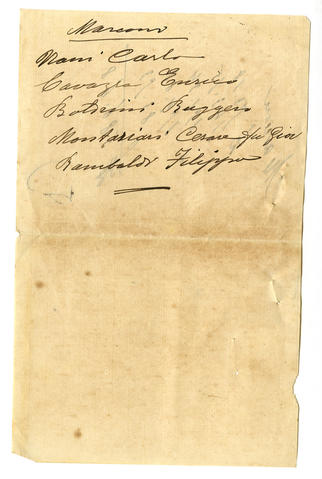 Marconi
Nani Carlo
Cavazza Enrico
Botrini Ruggero
Montanari Cesare fu Gior
Rambaldi Filippo